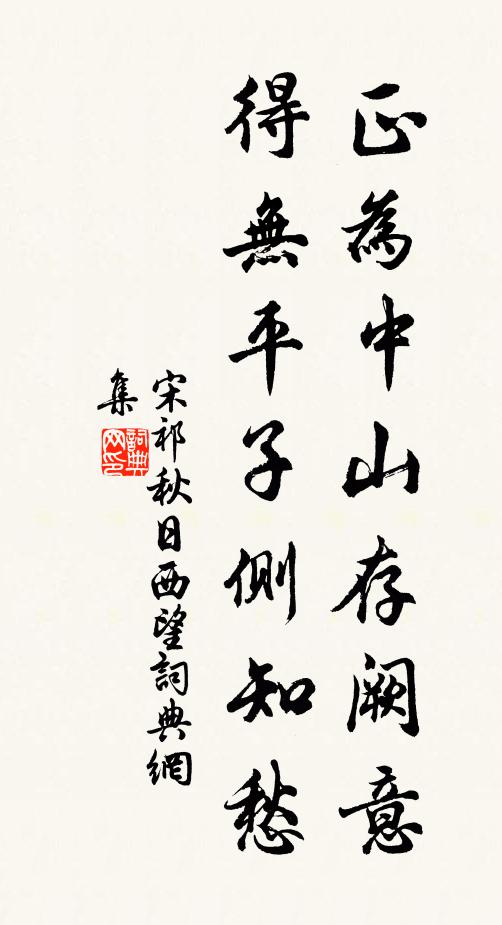 正為中山存闕意
得無平子側知愁
宋祁秋日西望詞典網
集
詞典
网印